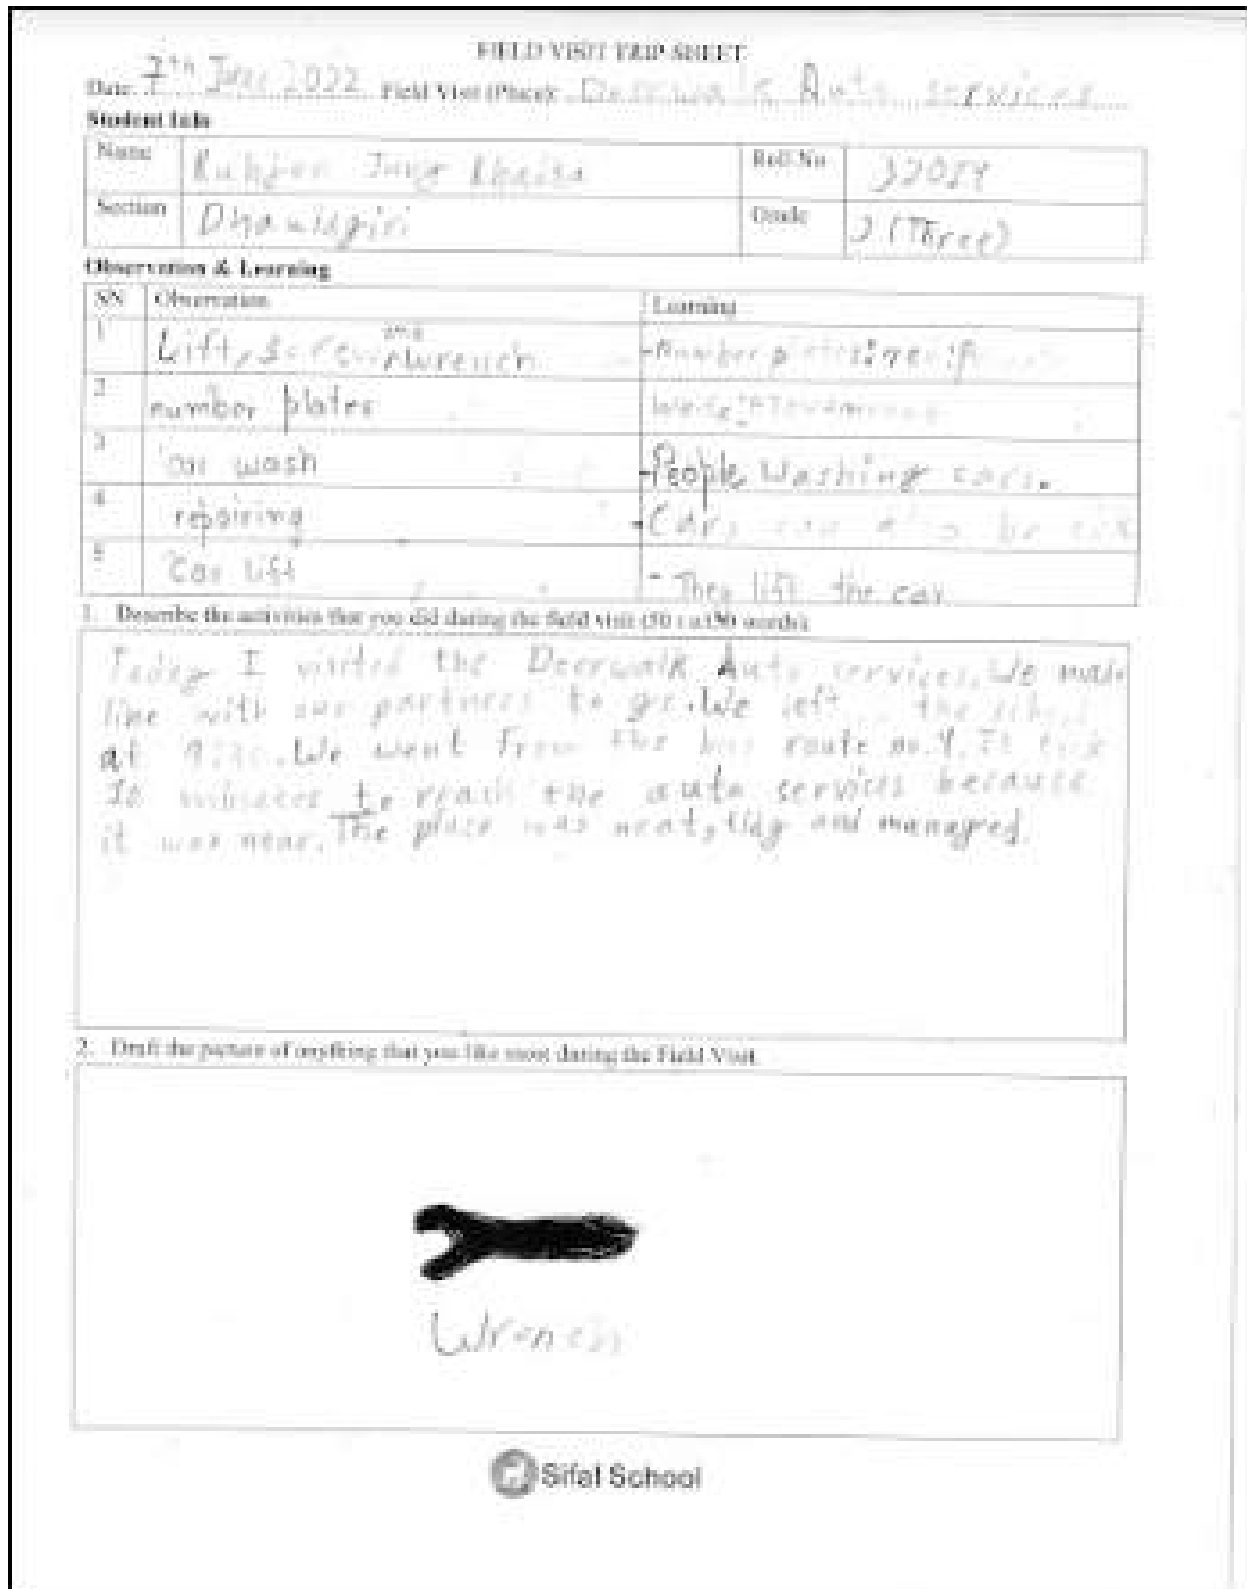 FIELD VISIT TRIP SHEET
Date: 7th June 2022 Field Visit (Place): Deerwalk Auto services
Student Info
Name Jung Roll No
Section Grade 3 (Three)
Observation & Learning
SN Observation Learning
1 Lift, and wrench - Number
2 number plates
3 car wash - People Washing cars.
4 repairing - Cars can also be
5 Car lift - They lift the car
1. Describe the activities that you did during the field visit (50 words).
Today I visited the Deerwalk Auto services. We made
line with our partners to go. We left the school
at We went from the bus route no. 4. It took
10 minutes to reach the auto services because
it was near. The place was neat, tidy and managed.
2. Draft the picture of anything that you like most during the Field Visit.
Wrench
Sifal School